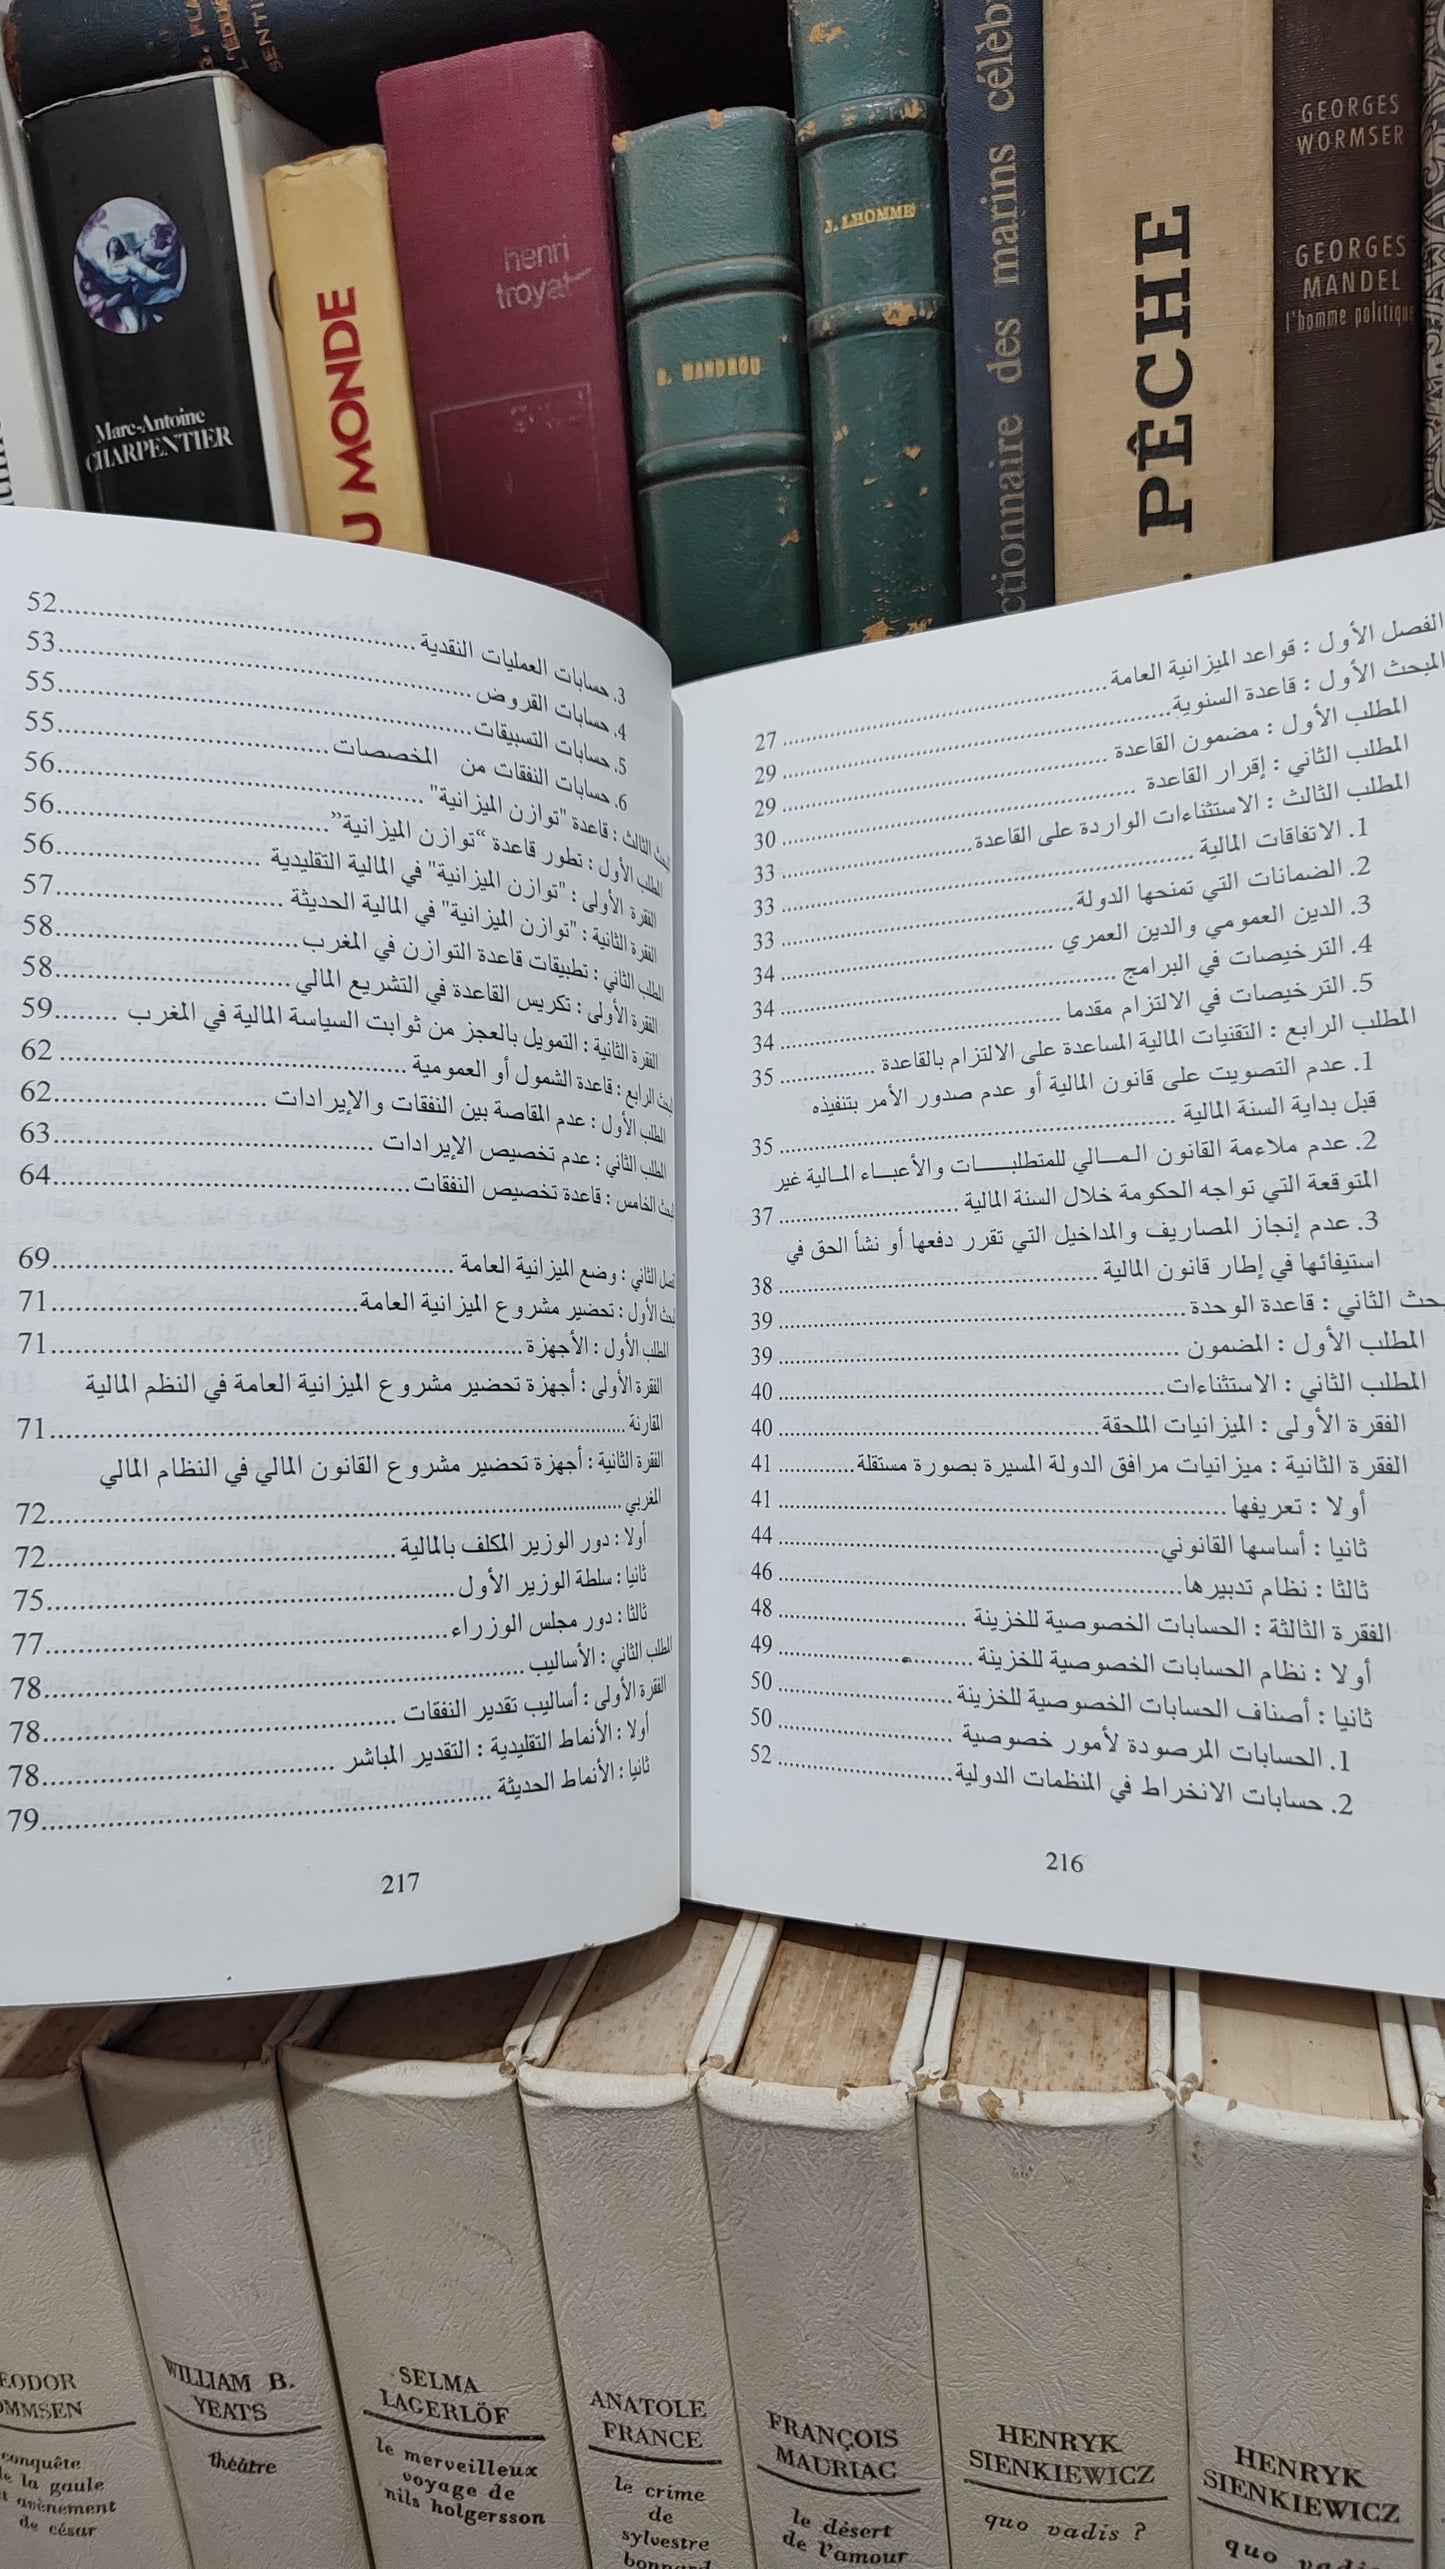 Marc-Antoine
CHARPENTIER
U MONDE
henri
troyat
R. MANDROU
J. LHOMME
ctionnaire des marins célèb
PÊCHE
GEORGES
WORMSER
GEORGES
MANDEL
l'homme politique
الفصل الأول : قواعد الميزانية العامة 27
المبحث الأول : قاعدة السنوية 29
المطلب الأول : مضمون القاعدة 29
المطلب الثاني : إقرار القاعدة 30
المطلب الثالث : الاستثناءات الواردة على القاعدة 33
1. الاتفاقات المالية 33
2. الضمانات التي تمنحها الدولة 33
3. الدين العمومي والدين العمري 34
4. الترخيصات في البرامج 34
5. الترخيصات في الالتزام مقدما 34
المطلب الرابع : التقنيات المالية المساعدة على الالتزام بالقاعدة 35
1. عدم التصويت على قانون المالية أو عدم صدور الأمر بتنفيذه
قبل بداية السنة المالية 35
2. عدم ملاءمة القانون المالي للمتطلبات والأعباء المالية غير
المتوقعة التي تواجه الحكومة خلال السنة المالية 37
3. عدم إنجاز المصاريف والمداخيل التي تقرر دفعها أو نشأ الحق في
استيفائها في إطار قانون المالية 38
حث الثاني : قاعدة الوحدة 39
المطلب الأول : المضمون 39
المطلب الثاني : الاستثناءات 40
الفقرة الأولى : الميزانيات الملحقة 40
الفقرة الثانية : ميزانيات مرافق الدولة المسيرة بصورة مستقلة 41
أولا : تعريفها 41
ثانيا : أساسها القانوني 44
ثالثا : نظام تدبيرها 46
الفقرة الثالثة : الحسابات الخصوصية للخزينة 48
أولا : نظام الحسابات الخصوصية للخزينة 49
ثانيا : أصناف الحسابات الخصوصية للخزينة 50
1. الحسابات المرصودة لأمور خصوصية 50
2. حسابات الانخراط في المنظمات الدولية 52
216
3. حسابات العمليات النقدية 52
4. حسابات القروض 53
5. حسابات التسبيقات 55
6. حسابات النفقات من المخصصات 55
بحث الثالث : قاعدة "توازن الميزانية" 56
الطلب الأول : تطور قاعدة “توازن الميزانية” 56
الفقرة الأولى : "توازن الميزانية" في المالية التقليدية 56
الفقرة الثانية : "توازن الميزانية" في المالية الحديثة 57
الطلب الثاني : تطبيقات قاعدة التوازن في المغرب 58
الفقرة الأولى : تكريس القاعدة في التشريع المالي 58
الفقرة الثانية : التمويل بالعجز من ثوابت السياسة المالية في المغرب 59
بحث الرابع : قاعدة الشمول أو العمومية 62
الطلب الأول : عدم المقاصة بين النفقات والإيرادات 62
الطلب الثاني : عدم تخصيص الإيرادات 63
بحث الخامس : قاعدة تخصيص النفقات 64
فصل الثاني : وضع الميزانية العامة 69
بحث الأول : تحضير مشروع الميزانية العامة 71
الطلب الأول : الأجهزة 71
الفقرة الأولى : أجهزة تحضير مشروع الميزانية العامة في النظم المالية
المقارنة 71
الفقرة الثانية : أجهزة تحضير مشروع القانون المالي في النظام المالي
المغربي 72
أولا : دور الوزير المكلف بالمالية 72
ثانيا : سلطة الوزير الأول 75
ثالثا : دور مجلس الوزراء 77
الطلب الثاني : الأساليب 78
الفقرة الأولى : أساليب تقدير النفقات 78
أولا : الأنماط التقليدية : التقدير المباشر 78
ثانيا : الأنماط الحديثة 79
217
EODOR
OMMSEN
conquête
de la gaule
et avènement
de césar
WILLIAM B.
YEATS
théâtre
SELMA
LAGERLÖF
le merveilleux
voyage de
nils holgersson
ANATOLE
FRANCE
le crime
de
sylvestre
bonnard
FRANÇOIS
MAURIAC
le désert
de l'amour
HENRYK
SIENKIEWICZ
quo vadis ?
HENRYK
SIENKIEWICZ
quo vadis